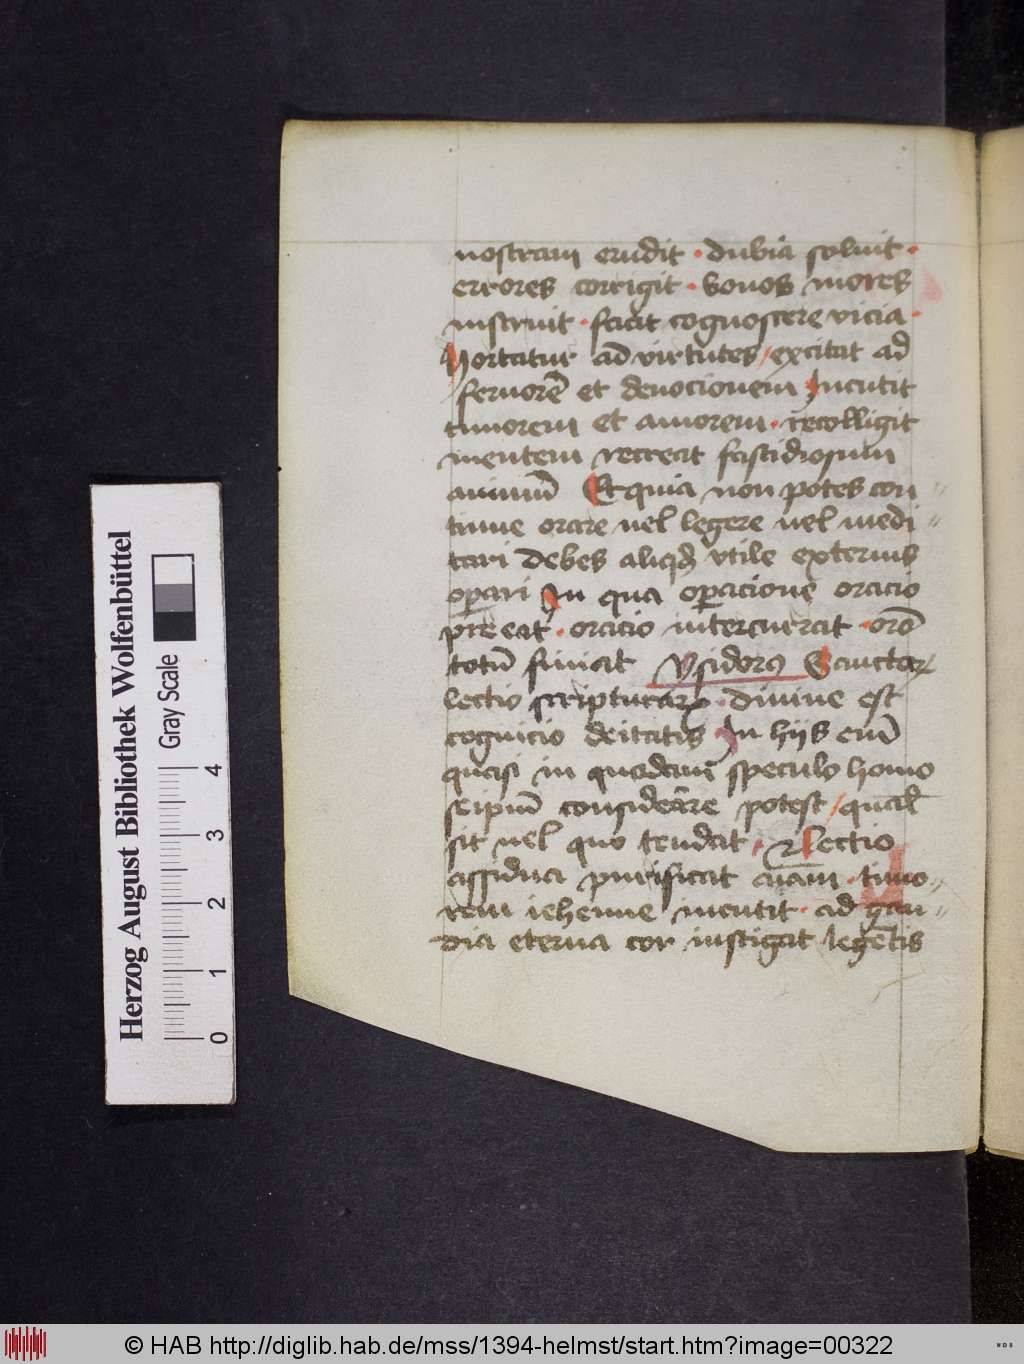 nostram erudit · dubia soluit ·
errores corrigit · bonos mores
instruit · facit cognoscere vicia ·
hortatur ad virtutes / excitat ad
feruorē et deuocionem Incutit
timorem et amorem · recolligit
mentem recreat fastidiosum
animū Et quia non potes con〃
tinue orare uel legere uel medi〃
tari debes aliqđ vtile exterius
oꝑari In qua oꝑacione oracio
preeat · oracio intercurrat · orō
totū finiat Ysidorꝰ Sanctaꝝ
lectio scripturaꝝ · diuine est
cognicio deitatis In hijs enī
quasi in quodam speculo homo
seipm̄ considerare potest / qual̛
sit uel quo tendat · ⁊ lectio
assidua purificat aīam · timo〃
rem iehenne incutit · ad gau〃
dia eterna cor instigat legētis
Herzog August Bibliothek Wolfenbüttel
Gray Scale
0 1 2 3 4
© HAB http://diglib.hab.de/mss/1394-helmst/start.htm?image=00322